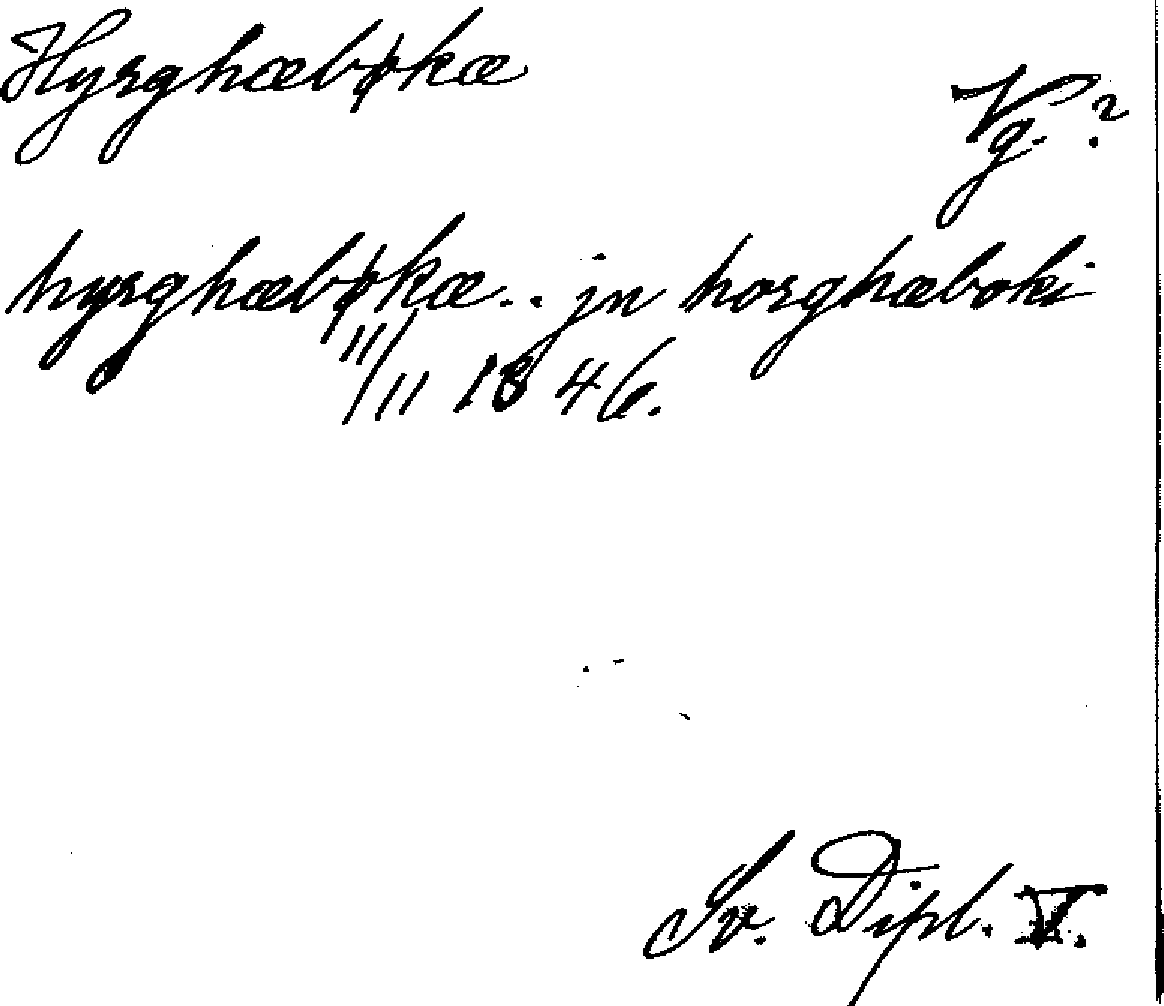 Hyrghæbøkæ
Vg.?
hyrghæbøkæ.. jn horghæboki
11/11 1346.
Sv. Dipl. V.